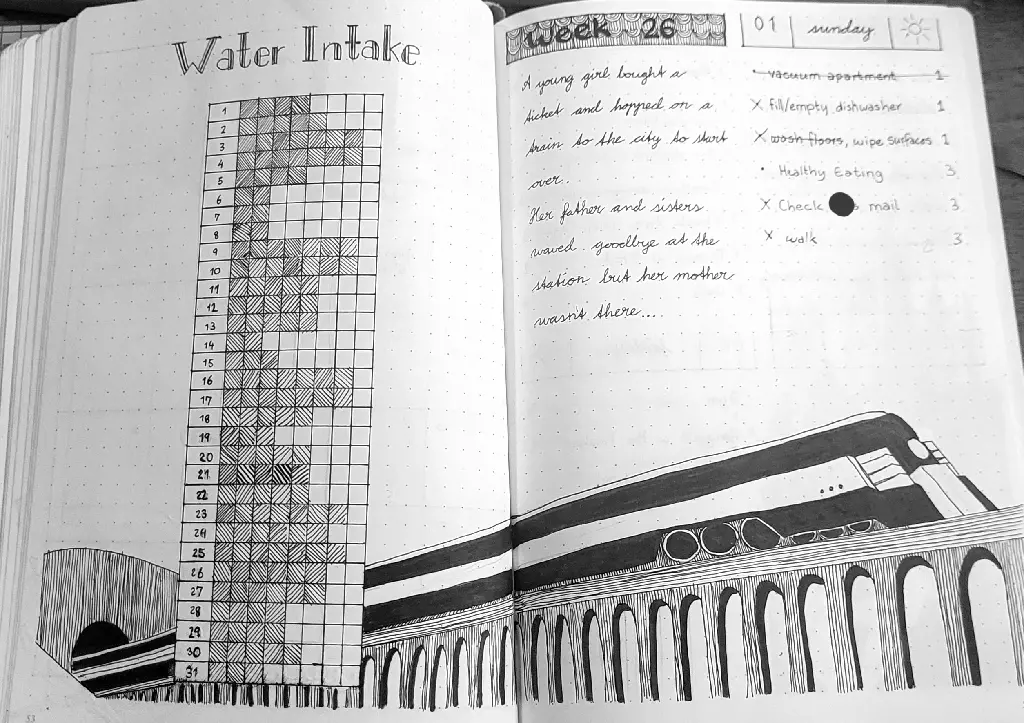 Water Intake
1
2
3
4
5
6
7
8
9
10
11
12
13
14
15
16
17
18
19
20
21
22
23
24
25
26
27
28
29
30
31
53
week 26
01 sunday
A young girl bought a
ticket and hopped on a
train to the city to start
over..
Her father and sisters
waved goodbye at the
station but her mother
wasn't there....
• vacuum apartment 1
X fill/empty dishwasher 1
X wash floors, wipe surfaces 1
• Healthy Eating 3
X Check mail 3
X walk 3